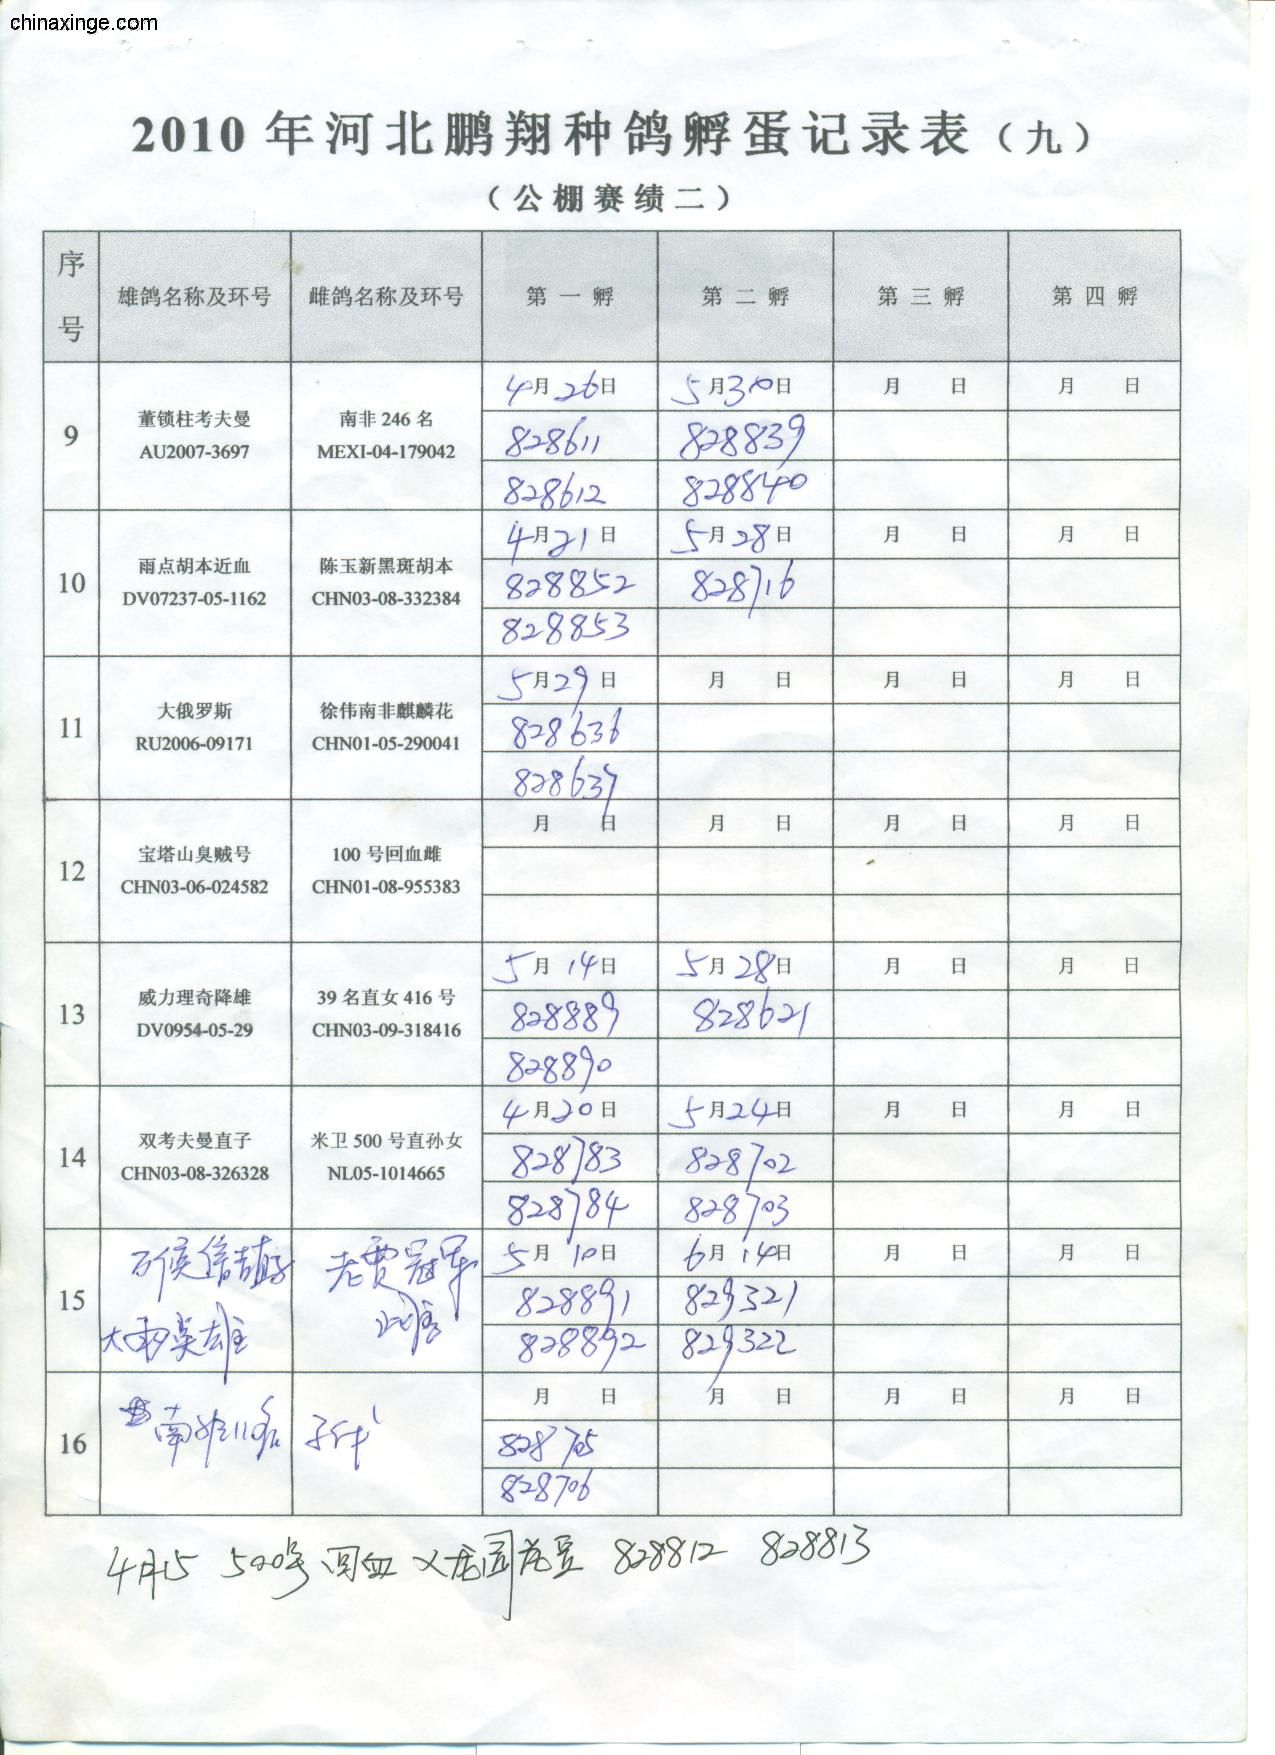 chinaxinge.com
2010 年河北鹏翔种鸽孵蛋记录表（九）
（公棚赛绩二）
序号 雄鸽名称及环号 雌鸽名称及环号 第一孵 第二孵 第三孵 第四孵
9 董锁柱考夫曼 南非 246 名 4月26日 5月30日 月 日 月 日
AU2007-3697 MEXI-04-179042 828611 828839
828612 828840
10 雨点胡本近血 陈玉新黑斑胡本 4月21日 5月28日 月 日 月 日
DV07237-05-1162 CHN03-08-332384 828852 828716
828853
11 大俄罗斯 徐伟南非麒麟花 5月29日 月 日 月 日 月 日
RU2006-09171 CHN01-05-290041 828636
828637
12 宝塔山臭贼号 100 号回血雌 月 日 月 日 月 日 月 日
CHN03-06-024582 CHN01-08-955383
13 威力理奇降雄 39 名直女 416 号 5月14日 5月28日 月 日 月 日
DV0954-05-29 CHN03-09-318416 828889 828621
828890
14 双考夫曼直子 米卫 500 号直孙女 4月20日 5月24日 月 日 月 日
CHN03-08-326328 NL05-1014665 828783 828702
828784 828703
15 老贾冠军 5月10日 6月14日 月 日 月 日
828891 829321
828892 829322
16 南非11名 月 日 月 日 月 日 月 日
828705
828706
4月15 500号 回血 X 龙园 828812 828813